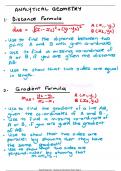 ANALYTICAL GEOMETRY
1. Distance Formula
dAB = √(x₂ - x₁)² + (y₂ - y₁)²
A (x₁, y₁)
B (x₂, y₂)
- Use to find the distance between two
points A and B with given coordinates
- Use to find a missing coordinate of
A or B, if you are given the distance
AB
- Use to show that two sides are equal
in length
2. Gradient Formula
mAB = y₂ - y₁ / x₂ - x₁
A (x₁, y₁)
B (x₂, y₂)
- Use to find the gradient of a line AB,
given the coordinates of A and B
- Use to find a missing coordinate of
A or B, if you are given the gradient
of AB
- Use to show that two sides are
parallel by showing that they have
the same gradient
- Use to show that two sides are
perpendicular by showing that